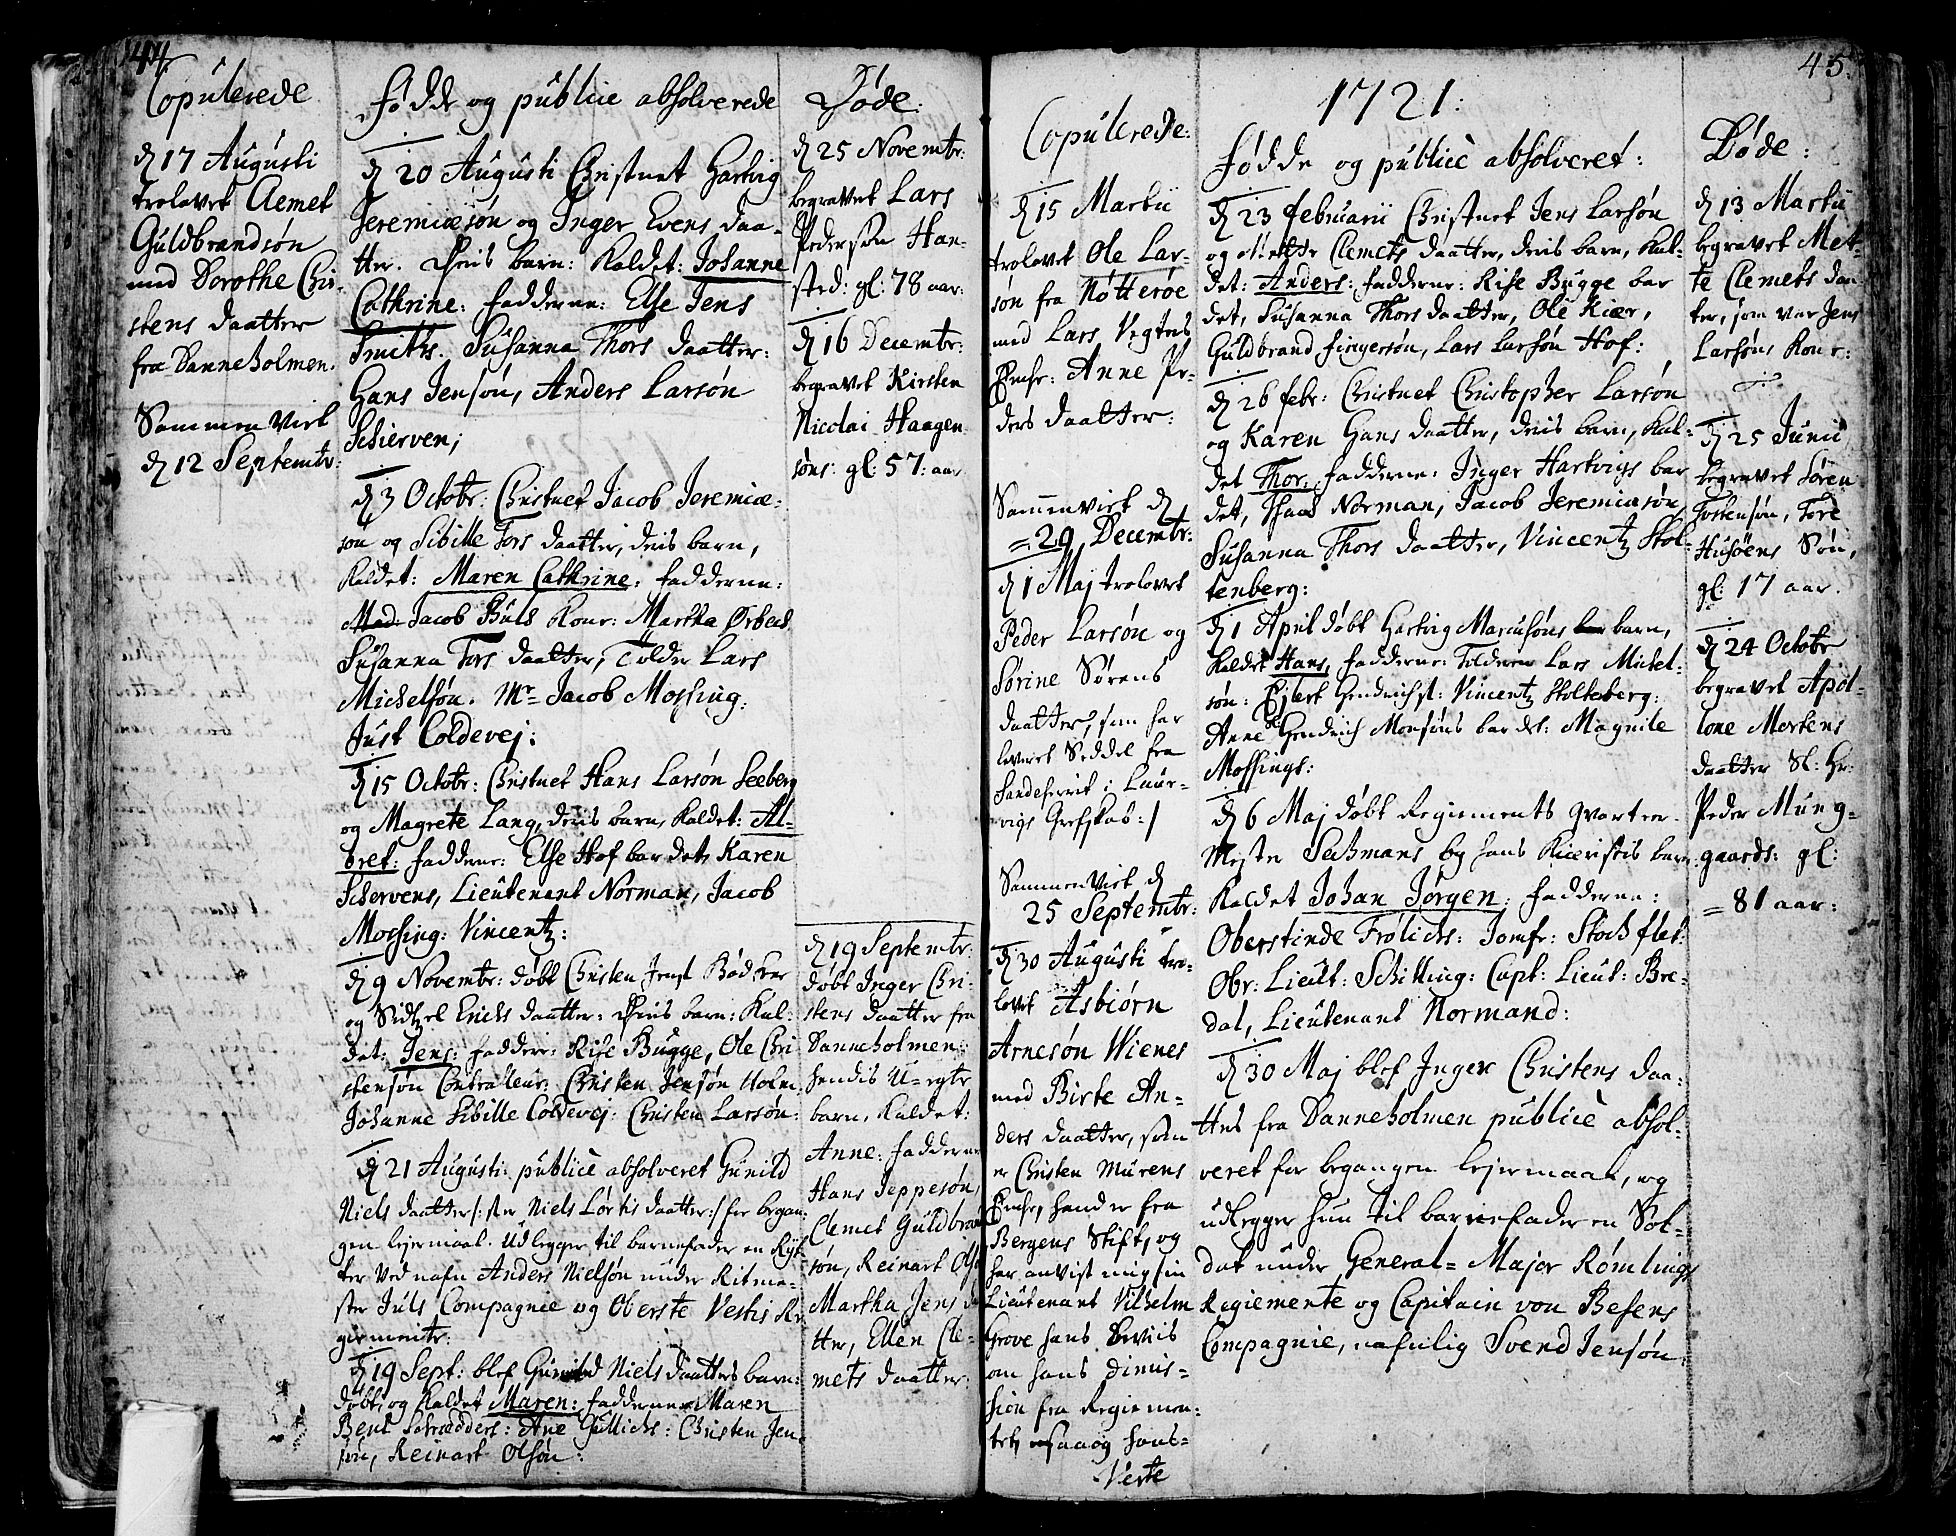 44.
Copulerede
d 17 Augusti
trolovet Clemet
Guldbrandsøn
med Dorothe Chri-
stens daatter
fra Danneholmen.
Sammen Viet
d 12 Septembr:
Fødde og publicè absolverede
d 20 Augusti Christnet Hartvig
Jeremiæsøn og Inger Evens daa-
tter. Deris barn: Kaldet: Johanne
Cathrine: fadderne: Else Jens
Smiths. Susanna Thors daatter:
Hans Jensøn, Anders Larsøn
Schierven;
d 3 Octobr: Christnet Jacob Jeremiæ-
søn og Sibille Tors daatter, deris barn,
Kaldet: Maren Cathrine: fadderne:
Mad: Jacob Buls Kone: Martha Ørbech
Susanna Tors daatter, Tolder Lars
Michelsøn. Mr Jacob Mossing:
Just Coldevej:
d 15 Octobr: Christnet Hans Larsøn Seeberg
og Magrete Lang, deris barn, Kaldet: Al-
bret: fadderne: Else Hof bar det, Karen
Schervens, Lieutenant Norman, Jacob
Mossing: Vincentz:
d 9 Novembr: døbt Christen Jensø Bødker
og Sidtzel Erichs daatter: Deris barn: Kal-
det: Jens: faddere: Rise Bugge, Ole Chri
stensøn Controlleur: Christen Jensøn Holm
Johanne Sibille Coldevej: Christen Larsøn:
d 21 Augusti: publicè absolveret Gunild
Niels daatter /: ster Niels Lørtis daatter:/ for began-
gen lejermaal. Udlegger til barnefader en Ryt-
ter ved nafn Anders Nielsøn under Ritme-
ster Juls Compagnie og Oberste Vestis Re
giemente:
d 19 Sept: blef Gunild Niels daatters barn
døbt, og Kaldet Maren: fadderne Maren
Bent Schrædders: Ane Gullichs: Christen Jen-
søn, Reinart Olsøn:
Døde:
d 25 Novembr:
begravet Lars
Pedersøn Han-
sted: gl: 78 aar:
d 16 Decembr:
begravet Kirsten
Nicolai Haagen
søns: gl: 57: aar
d 19 Septembr:
døbt Inger Chri-
stens daatter fra
Danneholmen:
hendis U-egte
barn, Kaldet:
Anne: fadderne
Hans Jeppesøn,
Clemet Guldbran
søn, Reinart Olsø
Martha Jens d
tter, Ellen Cle-
mets daatter.
45.
1721:
Copulerede:
d 15 Martii
trolovet Ole Lar-
søn fra Nøtterøe
med Lars Vegtes
Encke: Anne Pe-
ders daatter:
Sammenviet d
=29 Decembr:
d 1 Maj trolovet
Peder Larsøn og
Sørine Sørens
daatter, som har
leveret Seddel fra
Sandeherrit i Laur-
vigs Grefskab:/
Sammenviet d
25 Septembr:
d 30 Augusti tro-
lovet Asbiørn
Arnesøn Wienes
med Birte An-
ders daatter, som
er Christen Murens
Encke, hand er fra
Bergens Stift, og
har anvist mig sin
Lieutenant Vilhelm
Grove hans Beviis
om hans Dimis-
sion fra Regiemen-
tet, saaog hans-
Verte
Fødde og publicè absolveret:
d 23 Februarii Christnet Jens Larsøn
og Mette Clemets daatter, deris barn, Kal-
det: Anders: fadderne: Rise Bugge bar
det, Susanna Thors daatter, Ole Kiær,
Guldbrand Fingersøn, Lars Larsøn Hof:
d 26 Febr: Christnet Christopher Larsøn
og Karen Hans daatter, deris barn, Kal-
det Thor: fadderne: Inger Hartvigs bar
det, Thaas Norman, Jacob Jeremiæsøn,
Susanna Thors daatter, Vincentz Stol-
tenberg:
d 1 April døbt Hartvig Marcusøns barn,
Kaldet Hans, fadderne: Tolderen Lars Michel-
søn: Ejlert Hendrichs: Vincentz Stoltebeg:
Anne Hendrich Monsøns bar det: Magnile
Mossings:
d 6 Maj døbt Regiments qvarteer-
Mester Sechmans og hans Kieristis barn
Kaldet Johan Jørgen: fadderne:
Oberstinde Frølichs: Jomfr: Stochflet:
Obr: Lieut: Schilling: Capt: Lieut: Bre-
dal, Lieutenant Normand:
d 30 Maj blef Inger Christens daa-
tter fra Danneholmen publicè absol-
veret for begangen lejermaal, og
udlegger hun til barnefader en Sol-
dat under General-Major Rømlings
Regiemente og Capitain von Besens
Compagnie, nafnlig Svend Jensøn.
Døde:
d 13 Martii
begravet Met-
te Clemets daa
ter, som var Jens
Larsøns Kone:
d 25 Junii
begravet Søren
Tostensøn, Tore
Husøens Søn,
gl: 17 aar.
d 24 Octobr
begravet Apol-
lone Mortens
daatter Sl: Hr:
Peder Mung-
gaards: gl:
=81 aar: